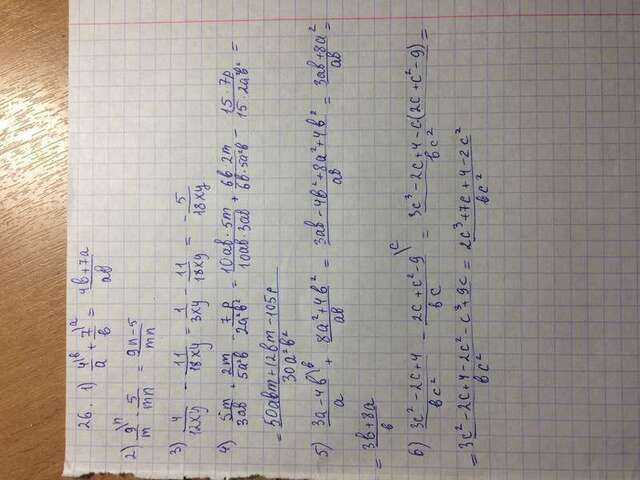 26. 1) 4\ᵇ/a + 7\ᵃ/b = (4b+7a)/ab
2) 9\ⁿ/m - 5/mn = (9n-5)/mn
3) 4/12xy - 11/18xy = 1/3xy - 11/18xy = -5/18xy
4) 5m/3ab + 2m/5a²b - 7p/2a²b² = (10ab·5m)/(10ab·3ab) + (6b·2m)/(6b·5a²b) - (15·7p)/(15·2a²b²) =
= (50abm+12bm-105p)/30a²b²
5) (3a-4b)\ᵇ/a + (8a²+4b²)/ab = (3ab-4b²+8a²+4b²)/ab = (3ab+8a²)/ab =
= (3b+8a)/b
6) (3c²-2c+4)/bc² - (2c+c²-9)\ᶜ/bc = (3c³-2c+4-c(2c+c²-9))/bc² =
= (3c²-2c+4-2c²-c³+9c)/bc² = (2c³+7c+4-2c²)/bc²